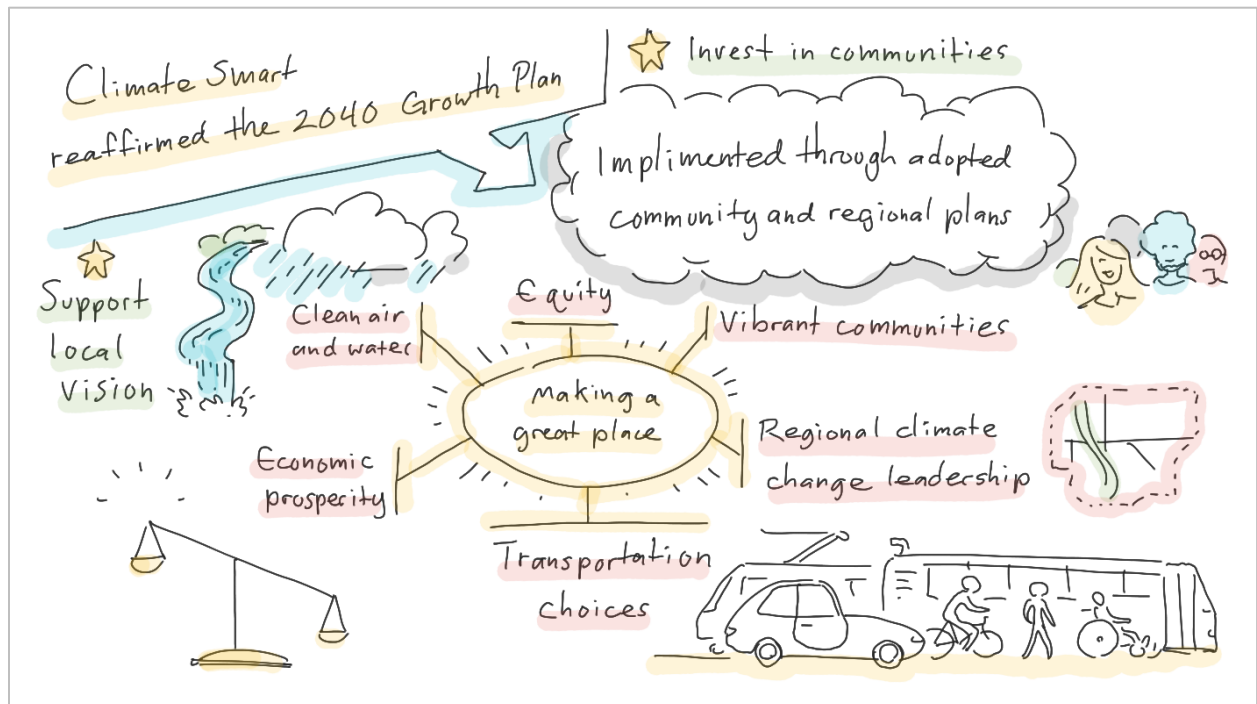 Climate Smart
reaffirmed the 2040 Growth Plan
Invest in communities
Implimented through adopted
community and regional plans
Support
local
Vision
Clean air
and water
Equity
Vibrant communities
Making a
great place
Economic
prosperity
Regional climate
change leadership
Transportation
choices